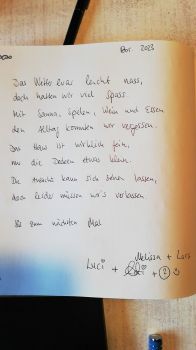 Dez. 2023
Das Wetter war leicht nass,
doch hatten wir viel Spass.
Mit Sauna, Spielen, Wein und Essen
den Alltag konnten wir vergessen.
Das Haus ist wirklich fein,
nur die Decken etwas klein.
Die Aussicht kann sich sehen lassen,
doch leider müssen wir's verlassen.
Bis zum nächsten Mal
Melissa + Lars
Luci +